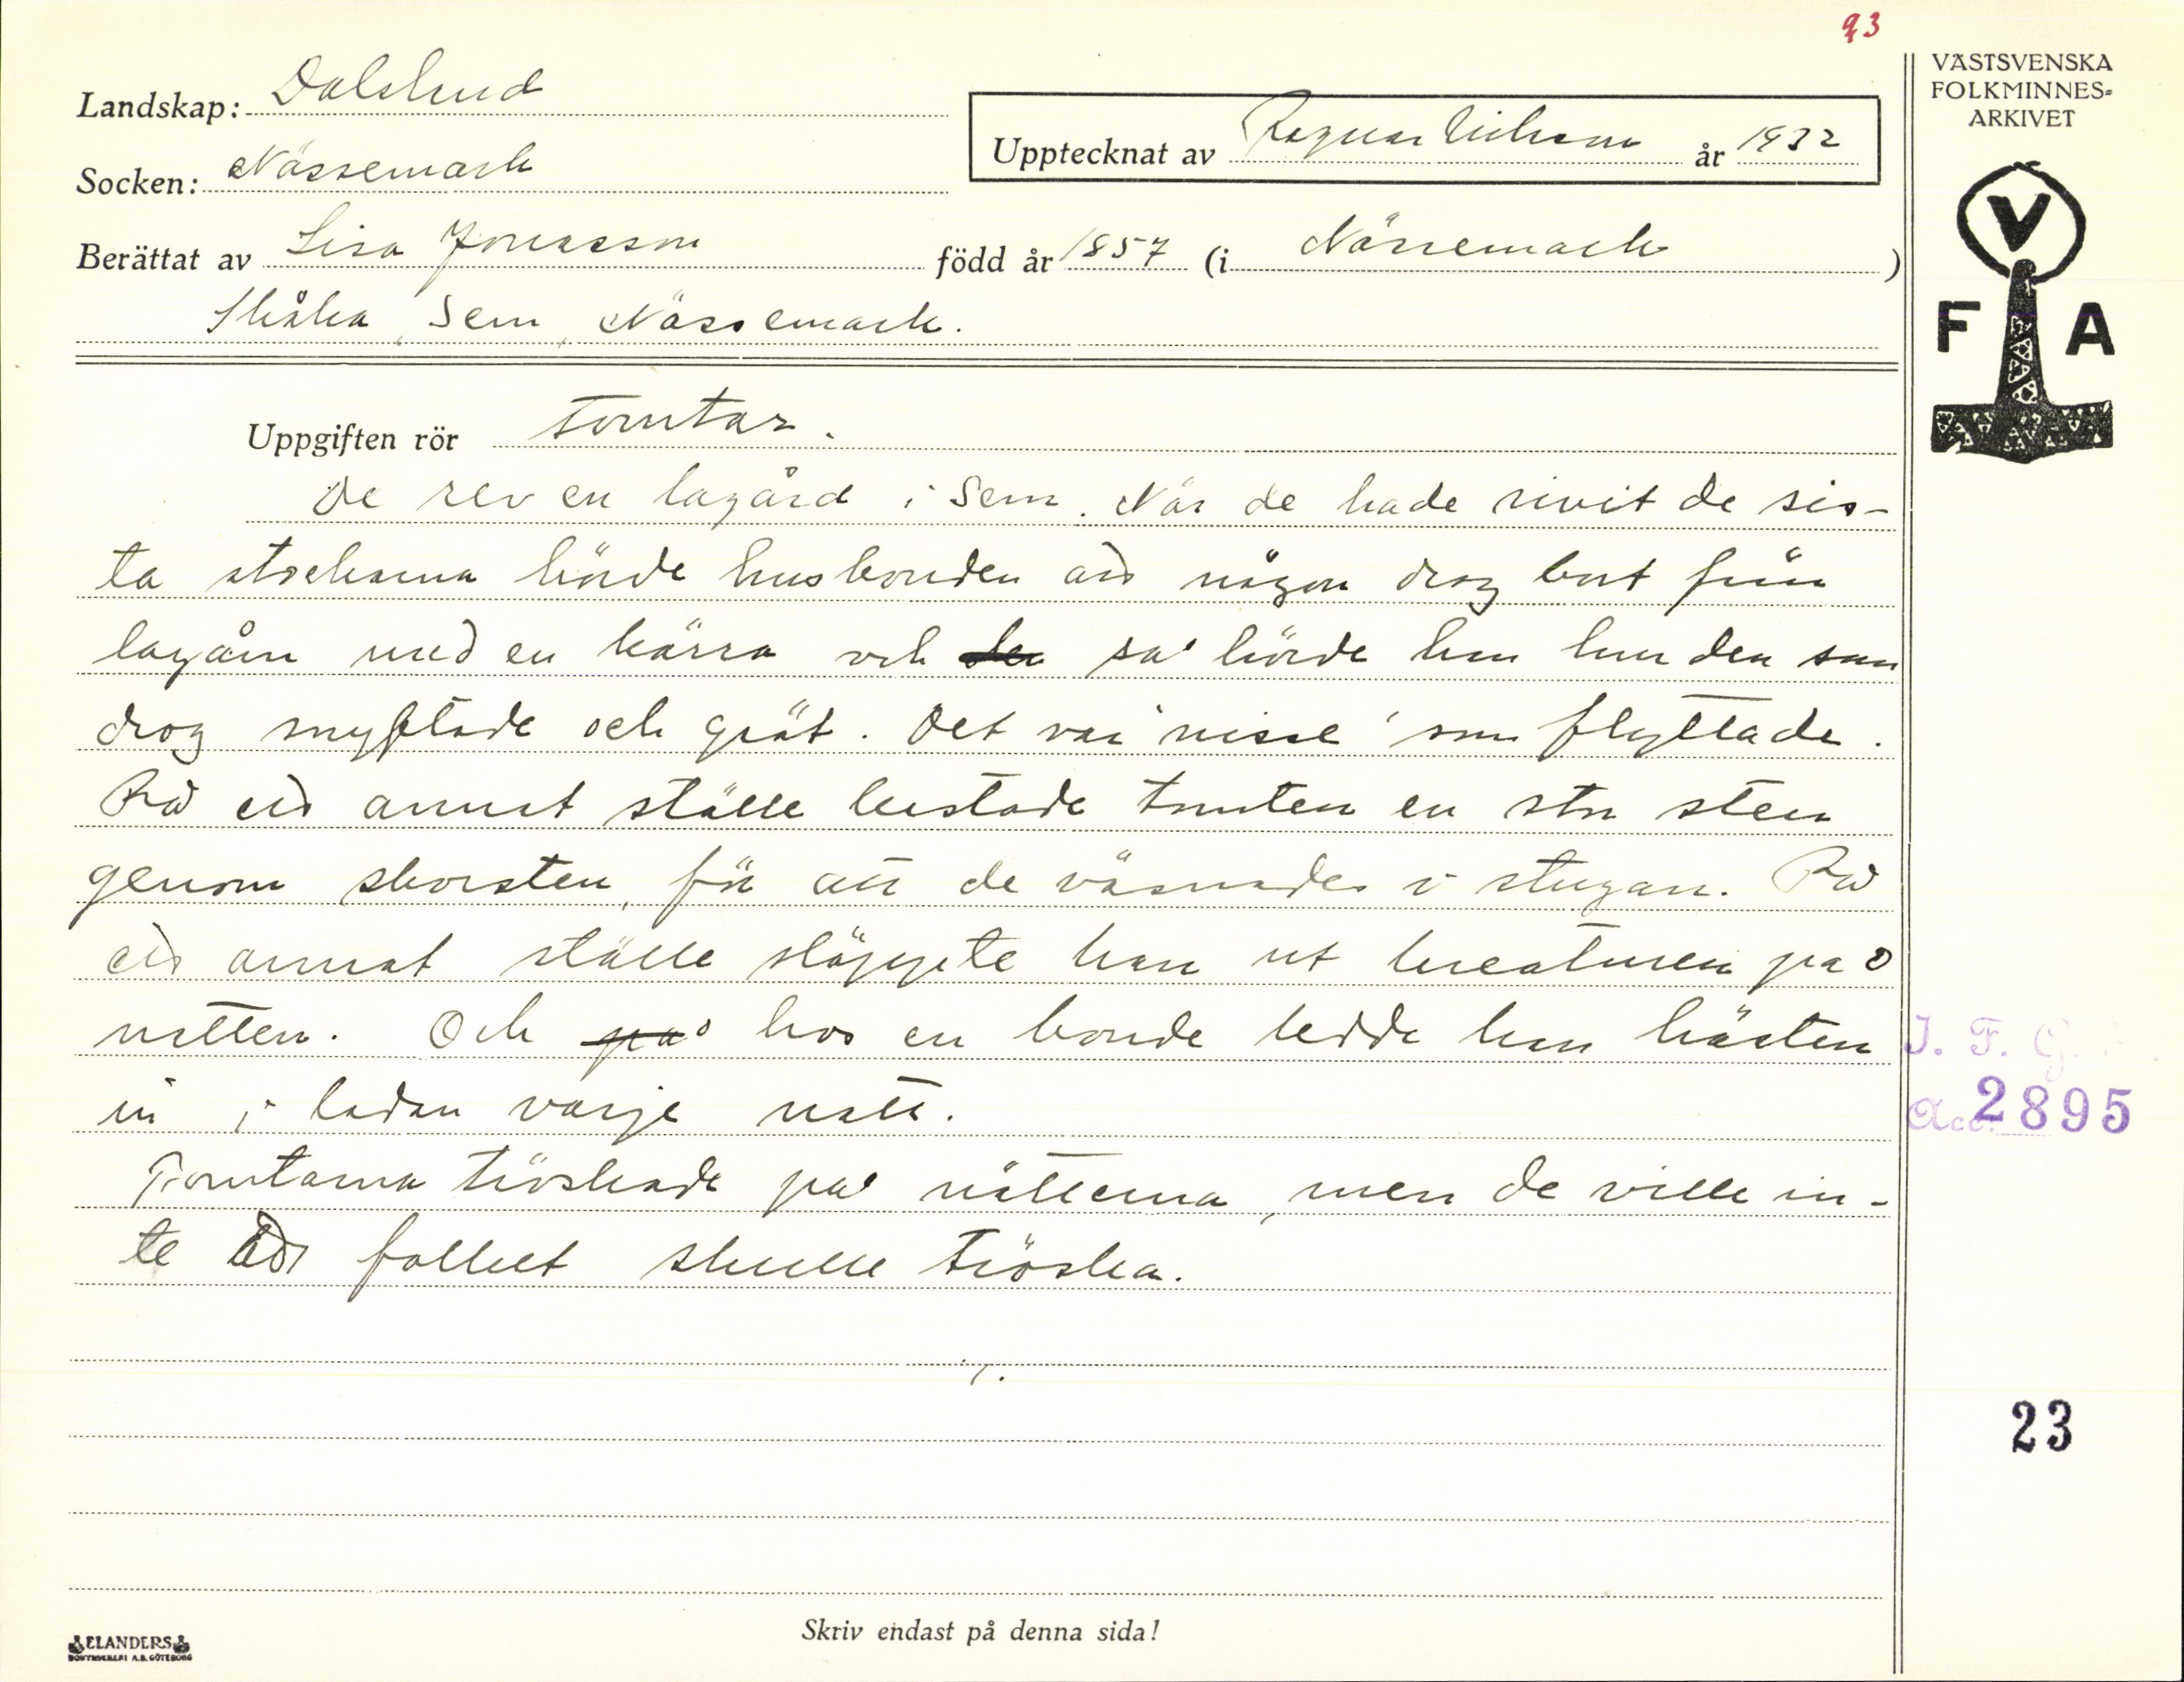 93
VÄSTSVENSKA
FOLKMINNES-
ARKIVET
Landskap: Dalsland
Upptecknat av Ragnar Nilsson år 1932
Socken: Nössemark
Berättat av Lisa Jonasson född år 1857 (i Nössemark)
Skåka, Sem, Nössemark.
V
F A
Uppgiften rör Tomtar.
De rev en lagård i Sem. När de hade rivit de sis-
ta stockarna hörde husbonden att någon drog bort från
lagårn med en kärra och så hörde han hur den som
drog snyftade och grät. Det var 'nisse' som flyttade.
På ett annat ställe kastade tomten en stor sten
genom skorsten, för att de väsnades i stugan. På
ett annat ställe släppte han ut kreaturen på
natten. Och på hos en bonde ledde han hästen
in i ladan varje natt.
Tomtarna tröskade på nätterna, men de ville in-
te att folket skulle tröska.
I. F. G.
Acc. 2895
23
Skriv endast på denna sida!
ELANDERS
BOKTRYCKERI A.B. GÖTEBORG